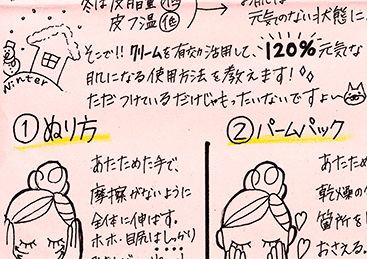 冬は皮脂量 低
皮フ温 低
元気のない状態に
Winter
そこで!! クリームを有効活用して、120%元気な
肌になる使用方法を教えます!
ただつけているだけじゃもったいないですよ〜
① ぬり方
あたためた手で、
摩擦がないように
全体に伸ばす。
ホホ・目尻はしっかり
② パームパック
あたため
乾燥の
箇所を
おさえる。